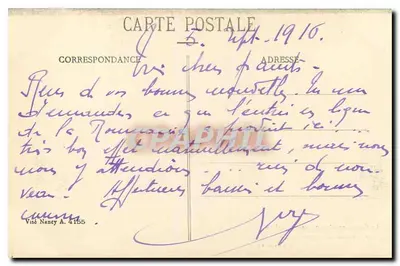 CARTE POSTALE
5 Sept. 1916.
CORRESPONDANCE ADRESSE
Mes chers parents.
Reçu de vos bonnes nouvelles. Tu me
demandes ce que l'entrée en ligne
de la Roumanie produit ici...
très bon effet naturellement, mais nous
nous y attendions ... rien de nou-
veau. Affectueux baisers et bonnes
Visé Nancy A. 4155